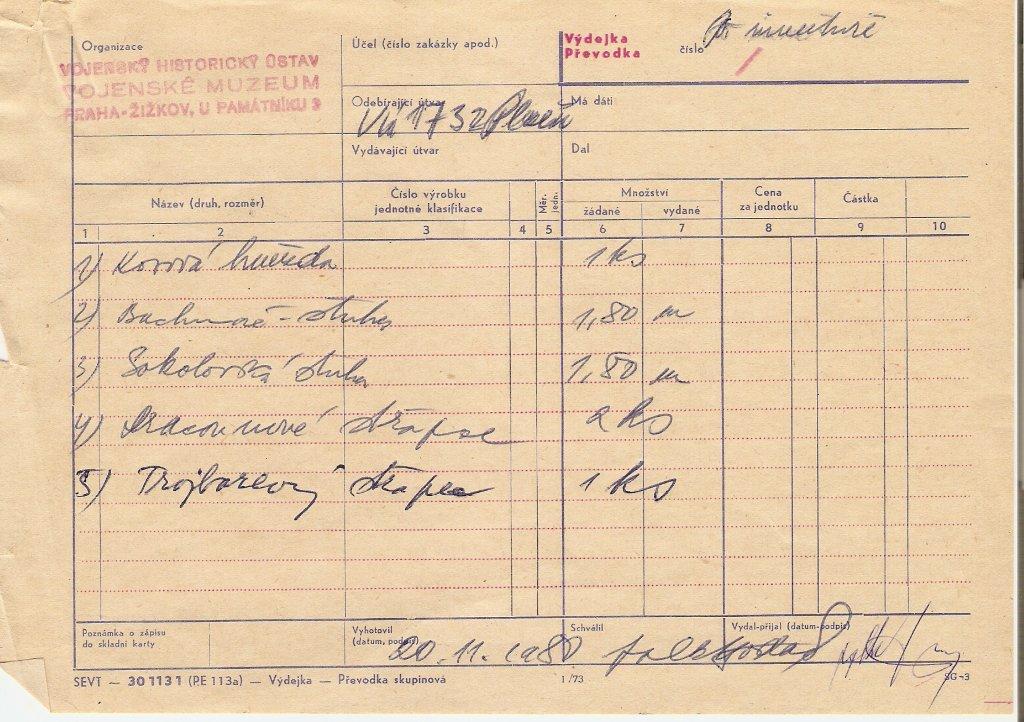 Organizace
VOJENSKÝ HISTORICKÝ ÚSTAV
VOJENSKÉ MUZEUM
PRAHA-ŽIŽKOV, U PAMÁTNÍKU 2
Účel (číslo zakázky apod.)
Výdejka
Převodka
číslo
Odebírající útvar
VÚ 1732 Plzeň
Má dáti
Vydávající útvar
Dal
Název (druh, rozměr)
Číslo výrobku
jednotné klasifikace
Měr. jedn.
Množství
žádané vydané
Cena
za jednotku
Částka
1 2 3 4 5 6 7 8 9 10
1) Kovová hvězda 1 ks
2) stuha 1,80 m
3) Sokolovská stuha 1,80 m
4) Dracounové střapce 2 ks
5) Trojbarevný střapec 1 ks
Poznámka o zápisu
do skladní karty
Vyhotovil
(datum, podpis)
20.11.1980
Schválil
Vydal-přijal (datum-podpis)
SEVT — 301131 (PE 113a) — Výdejka — Převodka skupinová
1/73
SG-3